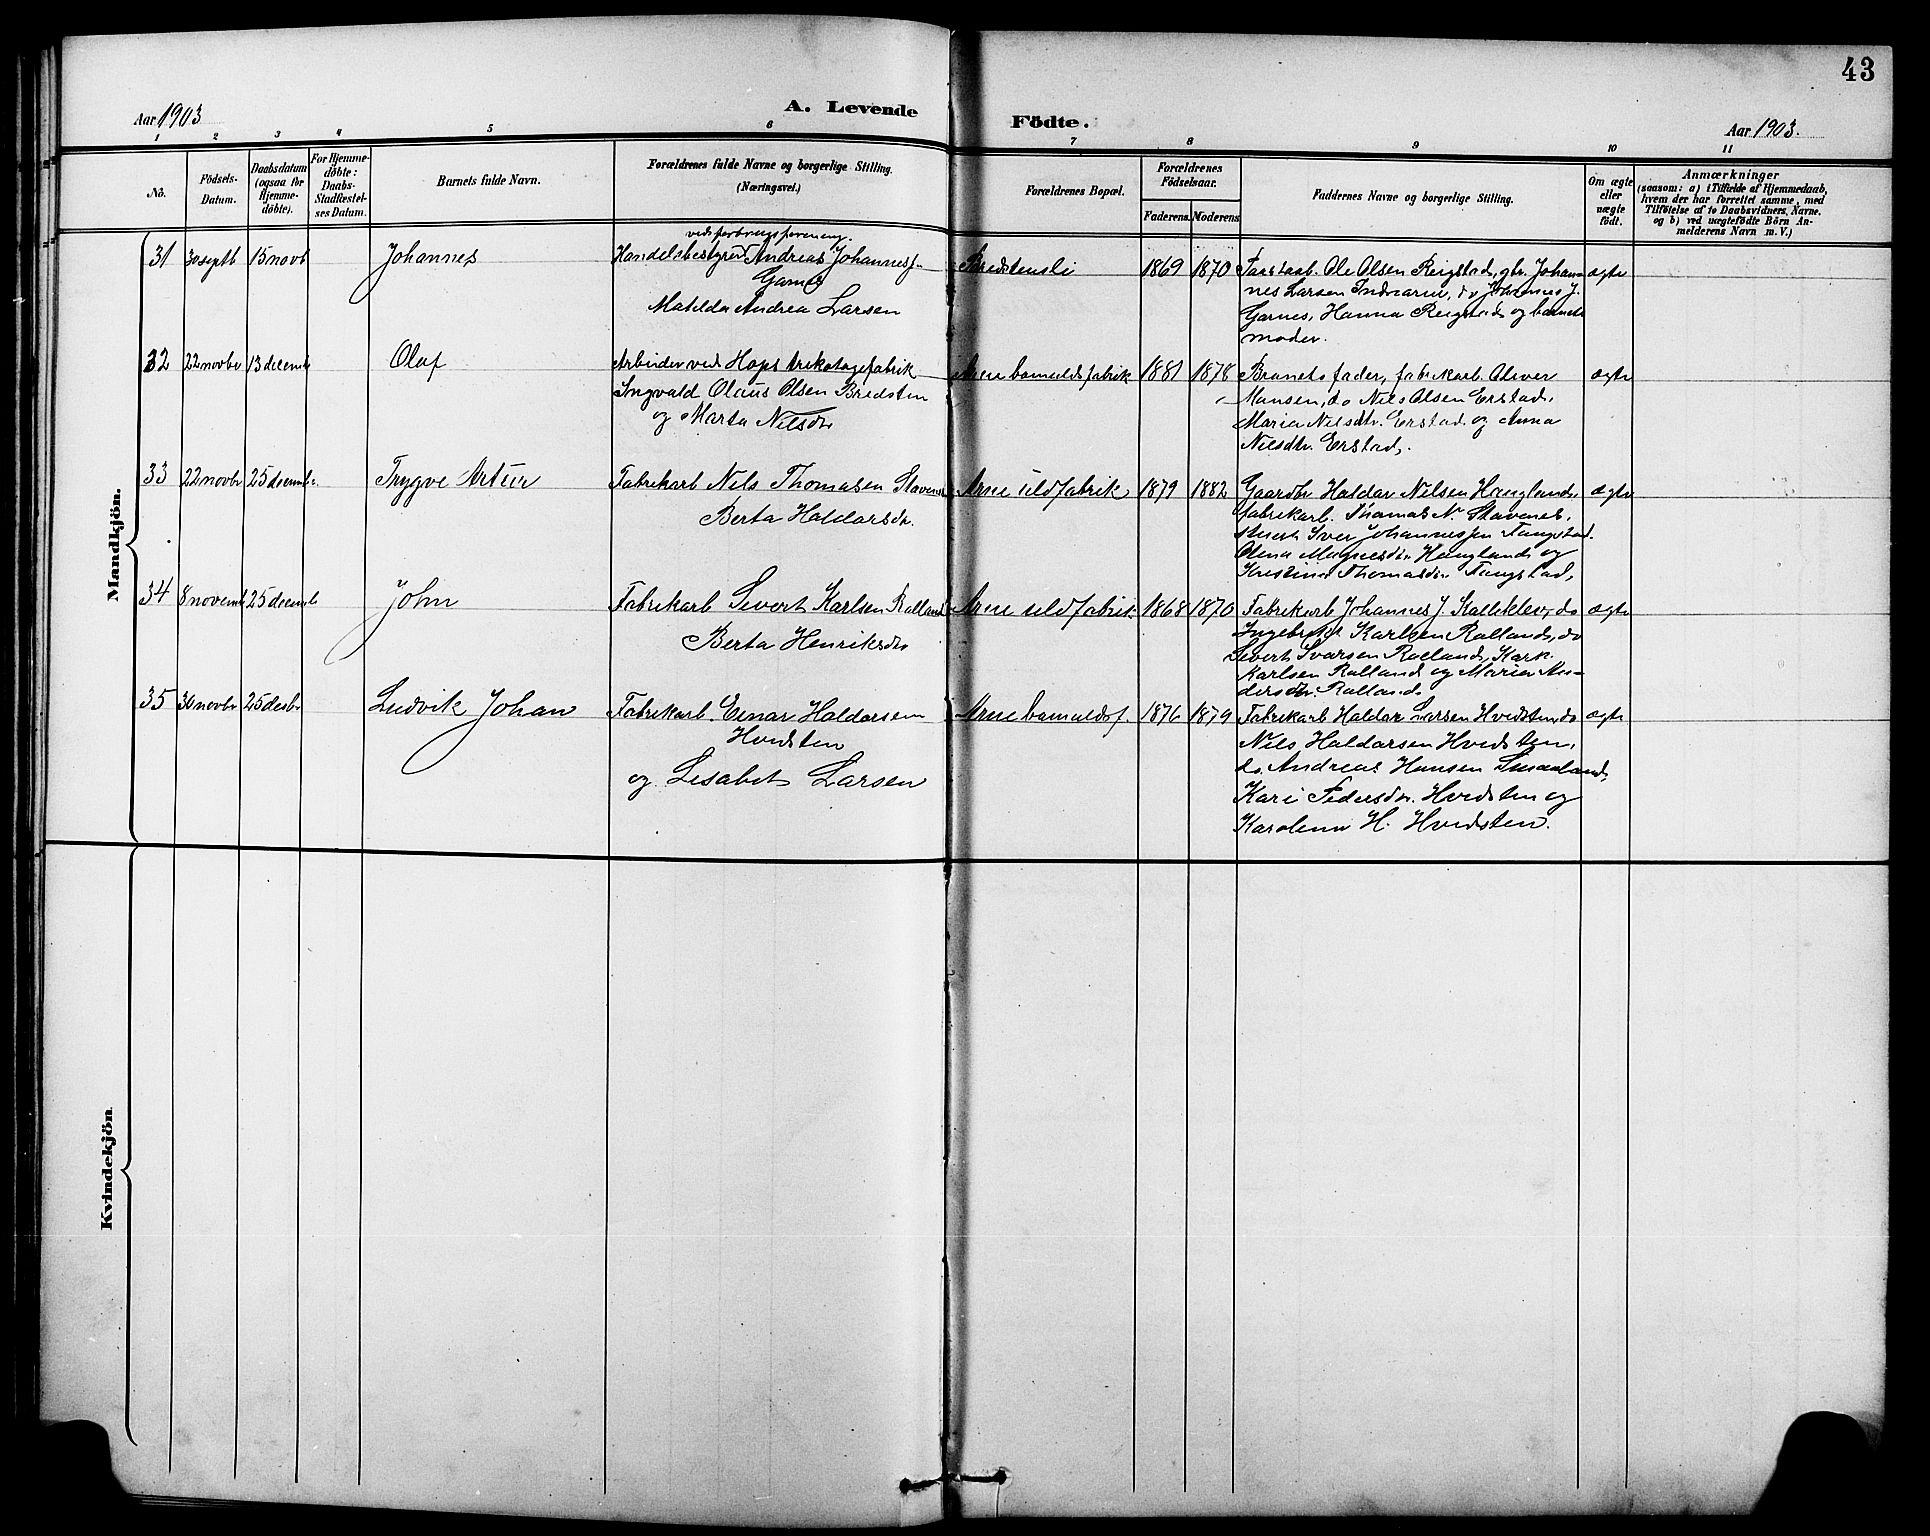 43
Aar 1903
A. Levende
Födte.
Aar 1903.
1 2 3 4 5 6 7 8 9 10 11
No.
Födsels-
Datum.
Daabsdatum
(ogsaa for
Hjemme-
döbte).
For Hjemme-
döbte:
Daabs-
Stadfæstel-
ses Datum.
Barnets fulde Navn.
Forældrenes fulde Navne og borgerlige Stilling.
(Næringsvei.)
Forældrenes Bopæl.
Forældrenes
Födselsaar.
Faderens. Moderens.
Faddernes Navne og borgerlige Stilling.
Om ægte
eller
uægte
födt.
Anmærkninger
(saasom: a) i Tilfælde af Hjemmedaab,
hvem der har forrettet samme, med
Tilföielse af to Daabsvidners Navne.
og b) ved uægtefödte Börn An-
melderens Navn m. V.)
Mandkjön.
31 30 septb 15 novb Johannes
ved forbrugsforening.
Handelsbestyrer Andreas Johannes J.
Garnes
Matilda Andrea Larsen
Bredstensli 1869 1870
Ole Olsen Reigstad, gbr. Johan-
nes Larsen Indrearne, do Johannes J.
Garnes, Hanna Reigstad og barnets
moder.
ægte
32 22 novbr 13 decemb Olaf
Arbeider ved Hops trikotagefabrik
Ingvald Olaus Olsen Bredsten
og Marta Nilsdr
Arne bomuldsfabrik 1881 1878
Barnets fader, fabrikarb. Oliver
Hansen, do Nils Olsen Erstad,
Maria Nilsdtr. Erstad og Anna
Nilsdtr. Erstad.
ægte
33 22 novbr 25 decembr. Trygve Artur
Fabrikarb Nils Thomasen Stavenes
Berta Haldorsdr.
Arne uldfabrik 1879 1882
Gaardbr Haldor Nilsen Haugland,
fabrikarb. Thomas N. Stavenes,
Iver Johannessen Tangstad.
Olena Magnesdr. Haugland og
Kristina Thomasdr. Tangstad,
ægte
34 8 novemb 25 decemb John
Fabrikarb Sivert Karlsen Rolland
Berta Henriksdr
Arne uldfabrik 1868 1870
Fabrikarb Johannes J. Kalleklev, do
Ingebrigt Karlsen Rolland, do
Sivert Ivarsen Rolland, Kark.
Karlsen Rolland og Maria An-
dersdtr. Rolland.
ægte
35 30 novbr 25 decbr Ludvik Johan
Fabrikarb. Einar Haldorsen
Hvidsten
og Lisabet Larsen
Arne bomuldsf. 1876 1879
Fabrikarb Haldor Larsen Hvidsten, do
Nils Haldorsen Hvidsten,
do. Andreas Hansen Smaaland,
Kari Pedersdr. Hvidsten og
Karolina H. Hvidsten.
ægte
Kvindekjön